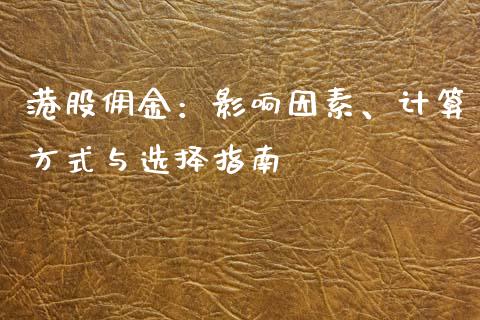 港股佣金：影响因素、计算
方式与选择指南